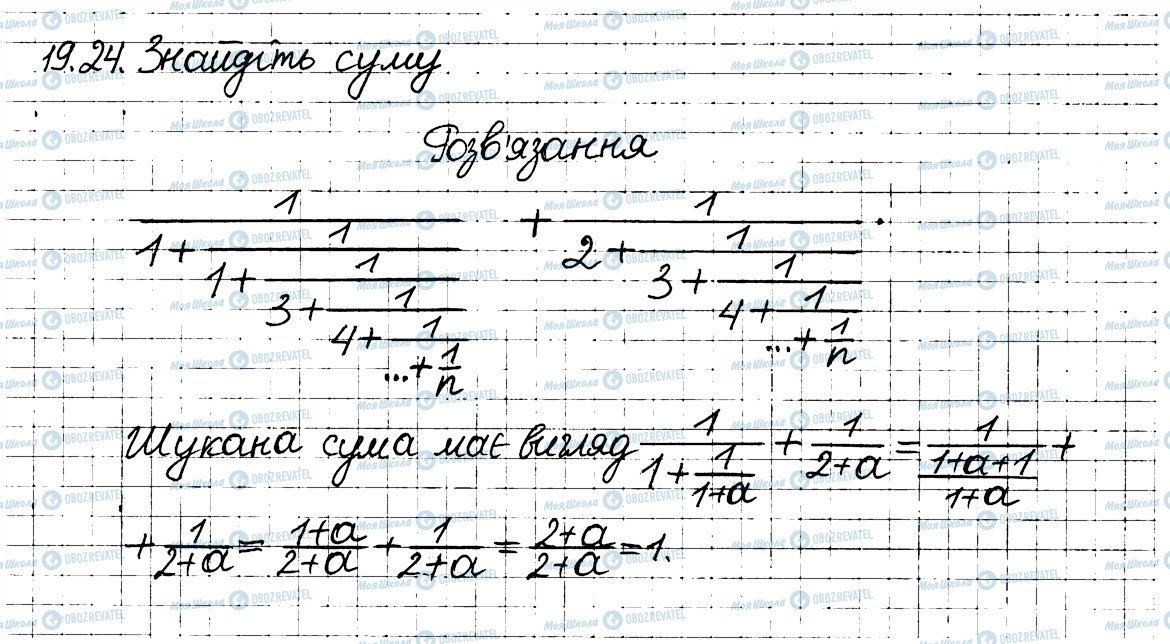 19.24. Знайдіть суму
Розв'язання
1/(1+1/(1+1/(3+1/(4+1/(...+1/n))))) + 1/(2+1/(3+1/(4+1/(...+1/n)))).
Шукана сума має вигляд 1/(1+1/(1+a)) + 1/(2+a) = 1/((1+a+1)/(1+a)) +
+ 1/(2+a) = (1+a)/(2+a) + 1/(2+a) = (2+a)/(2+a) = 1.
МояШкола OBOZREVATEL